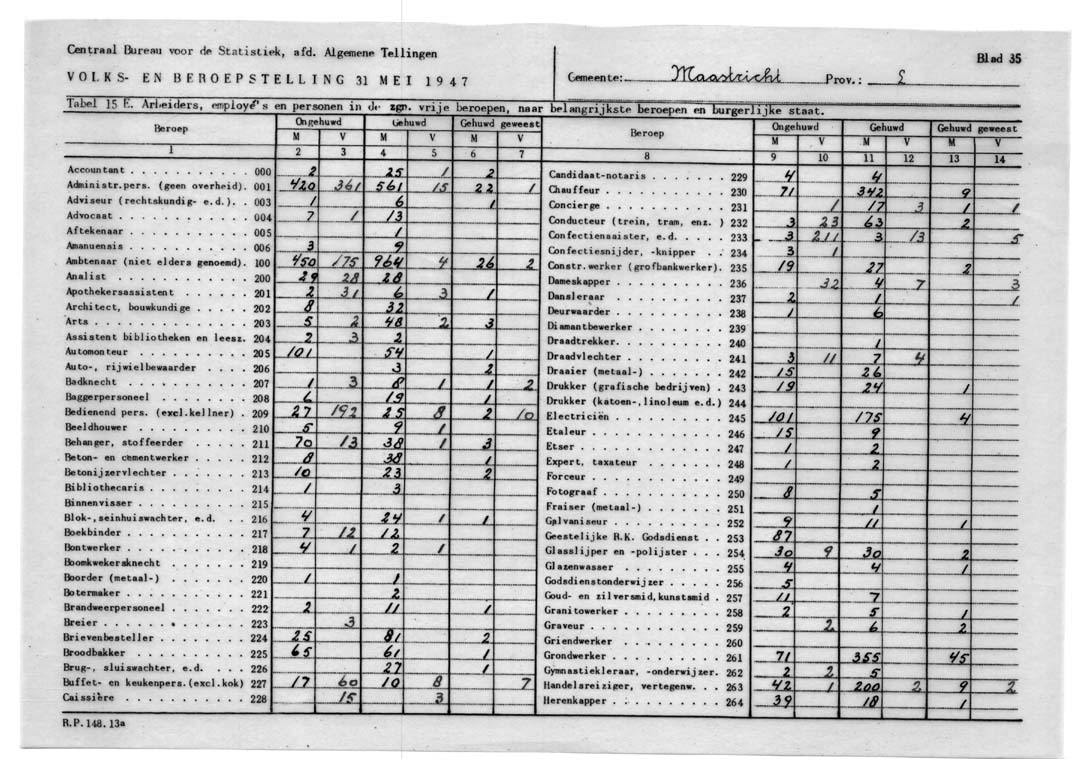 Centraal Bureau voor de Statistiek, afd. Algemene Tellingen
VOLKS- EN BEROEPSTELLING 31 MEI 1947
Gemeente: Maastricht Prov.: L
Blad 35
Tabel 15 E. Arbeiders, employé's en personen in de zgn. vrije beroepen, naar belangrijkste beroepen en burgerlijke staat.
Beroep Ongehuwd Gehuwd Gehuwd geweest
M V M V M V
1 2 3 4 5 6 7
Accountant 000 2 25 1 2
Administr.pers. (geen overheid). 001 420 361 561 15 22 1
Adviseur (rechtskundig- e.d.). 003 1 6 1
Advocaat 004 7 1 13
Aftekenaar 005 1
Amanuensis 006 3 9
Ambtenaar (niet elders genoemd). 100 450 175 964 4 26 2
Analist 200 29 28 28
Apothekersassistent 201 2 31 6 3 1
Architect, bouwkundige 202 8 32
Arts 203 5 2 48 2 3
Assistent bibliotheken en leesz. 204 2 3 2
Automonteur 205 101 54 1
Auto-, rijwielbewaarder 206 3 2
Badknecht 207 1 3 8 1 1 2
Baggerpersoneel 208 6 19 1
Bedienend pers. (excl.kellner) 209 27 192 25 8 2 10
Beeldhouwer 210 5 9 1
Behanger, stoffeerder 211 70 13 38 1 3
Beton- en cementwerker 212 8 38 1
Betonijzervlechter 213 10 23 2
Bibliothecaris 214 1 3
Binnenvisser 215
Blok-, seinhuiswachter, e.d. 216 4 24 1 1
Boekbinder 217 7 12 12
Bontwerker 218 4 1 2 1
Boomkwekersknecht 219
Boorder (metaal-) 220 1 1
Botermaker 221 2
Brandweerpersoneel 222 2 11 1
Breier 223 3
Brievenbesteller 224 25 81 2
Broodbakker 225 65 61 1
Brug-, sluiswachter, e.d. 226 27 1
Buffet- en keukenpers.(excl.kok) 227 17 60 10 8 7
Caissière 228 15 3
R.P. 148. 13a
Beroep Ongehuwd Gehuwd Gehuwd geweest
M V M V M V
8 9 10 11 12 13 14
Candidaat-notaris 229 4 4
Chauffeur 230 71 342 9
Concierge 231 1 17 3 1 1
Conducteur (trein, tram, enz.) 232 3 23 63 2
Confectienaaister, e.d. 233 3 211 3 13 5
Confectiesnijder, -knipper 234 3 1
Constr.werker (grofbankwerker). 235 19 27 2
Dameskapper 236 32 4 7 3
Dansleraar 237 2 1 1
Deurwaarder 238 1 6
Diamantbewerker 239
Draadtrekker. 240 1
Draadvlechter 241 3 11 7 4
Draaier (metaal-) 242 15 26
Drukker (grafische bedrijven) 243 19 24 1
Drukker (katoen-,linoleum e.d.) 244
Electriciën 245 101 175 4
Etaleur 246 15 9
Etser 247 1 2
Expert, taxateur 248 1 2
Forceur 249
Fotograaf 250 8 5
Fraiser (metaal-) 251 1
Galvaniseur 252 9 11 1
Geestelijke R.K. Godsdienst 253 87
Glasslijper en -polijster 254 30 9 30 2
Glazenwasser 255 4 4 1
Godsdienstonderwijzer 256 5
Goud- en zilversmid,kunstsmid 257 11 7
Granitowerker 258 2 5 1
Graveur 259 2 6 2
Griendwerker 260
Grondwerker 261 71 355 45
Gymnastiekleraar, -onderwijzer. 262 2 2 5
Handelsreiziger, vertegenw. 263 42 1 200 2 9 2
Herenkapper 264 39 18 1